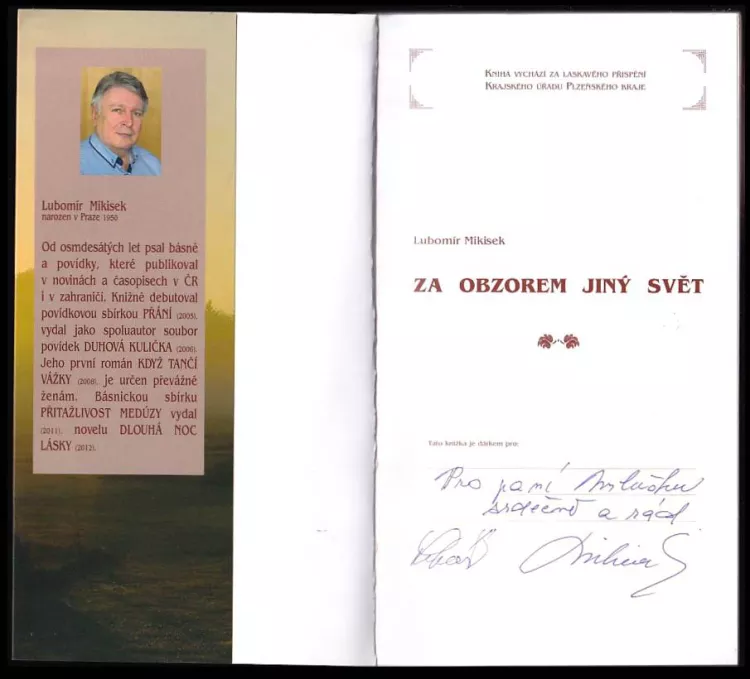 Lubomír Mikisek
narozen v Praze 1950
Od osmdesátých let psal básně
a povídky, které publikoval
v novinách a časopisech v ČR
i v zahraničí. Knižně debutoval
povídkovou sbírkou PŘÁNÍ (2005),
vydal jako spoluautor soubor
povídek DUHOVÁ KULIČKA (2006).
Jeho první román KDYŽ TANČÍ
VÁŽKY (2008), je určen převážně
ženám. Básnickou sbírku
PŘITAŽLIVOST MEDÚZY vydal
(2011), novelu DLOUHÁ NOC
LÁSKY (2012).
Kniha vychází za laskavého přispění
Krajského úřadu Plzeňského kraje
Lubomír Mikisek
ZA OBZOREM JINÝ SVĚT
Tato knížka je dárkem pro:
Pro paní
srdečně a rád